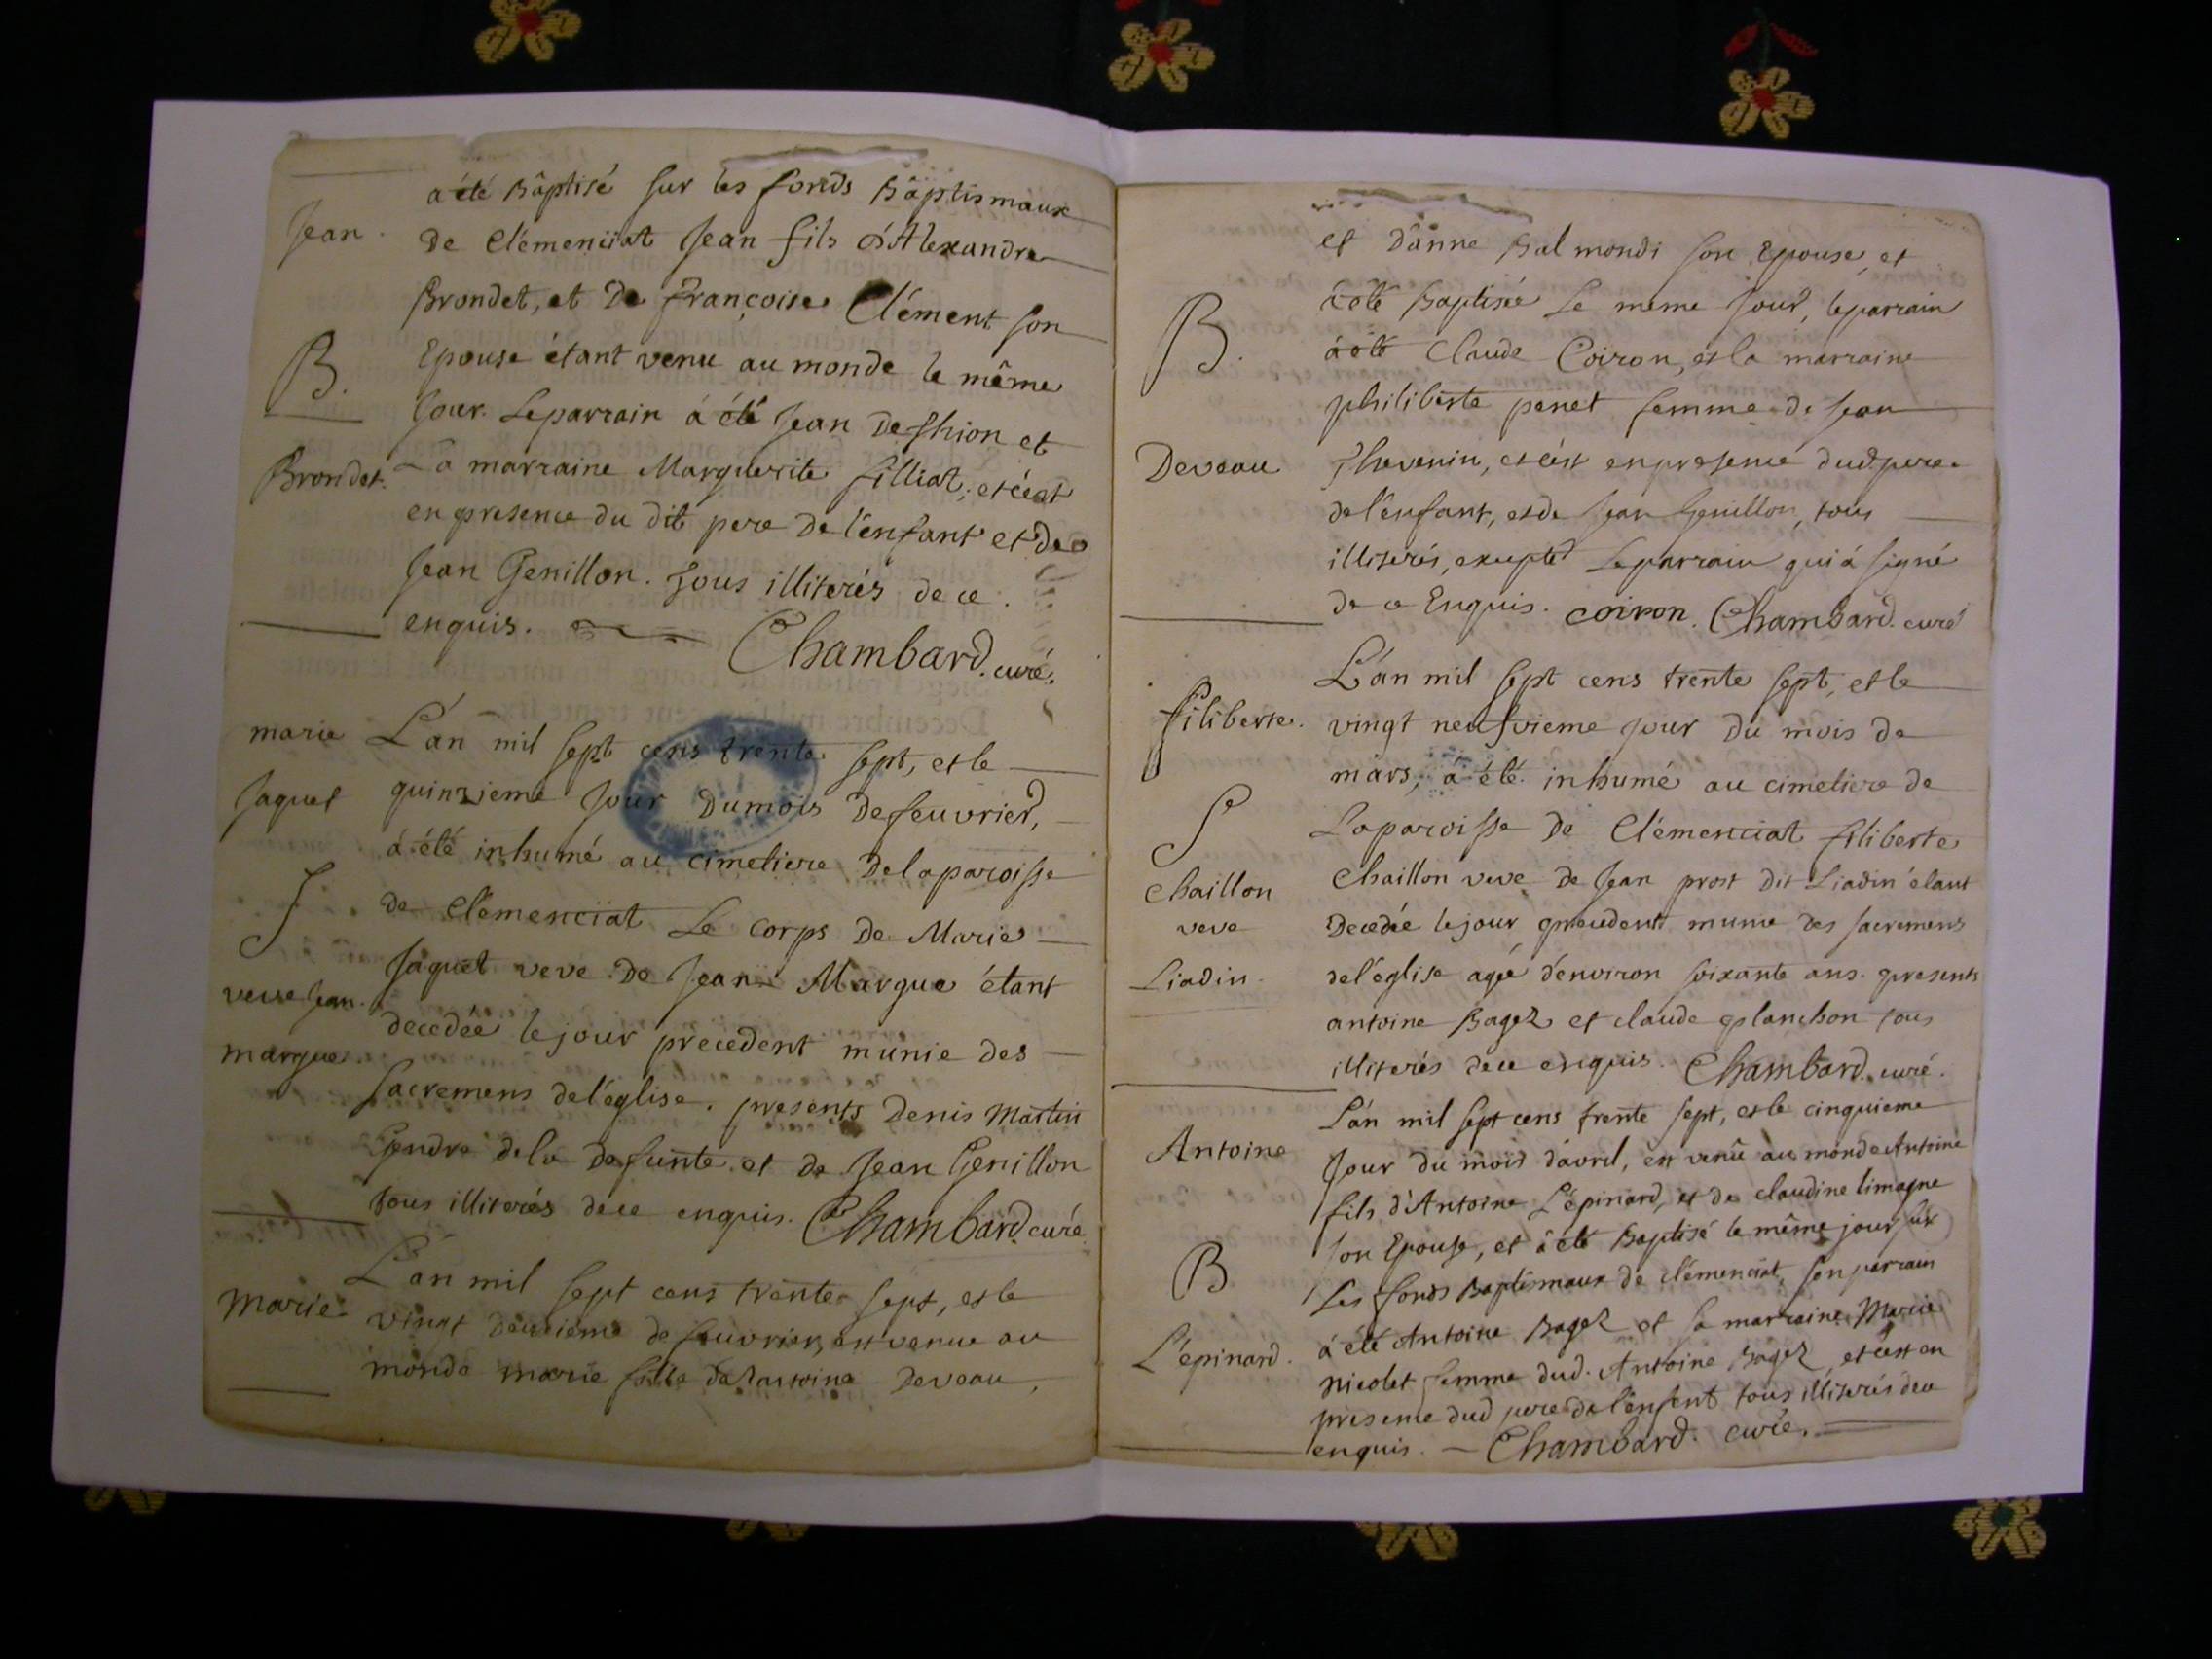 a été Bâptisé sur les fonds Bâptismaux
Jean.
de Clémenciat Jean fils d'Alexandre
Brondet, et de françoise Clément son
B.
Epouse étant venu au monde le même
Jour. Le parrain à été Jean Deshion et
Brondet.
La marraine Marguerite filliat, et c'est
en presence du dit pere de l'enfant et de
Jean Genillon. tous illiterés de ce
enquis.
Chambard. curé.
marie
L'an mil sept cens trente sept, et le
Jaquet
quinzieme jour du mois de feuvrier,
à été inhumé au cimetiere de la paroisse
S
de Clémenciat Le corps de Marie
Jaquet veve de Jean Margue étant
veve Jean
decedée le jour precedent munie des
margue.
sacremens de l'église. presents Denis Martin
Gendre de la defunte et de Jean Genillon
tous illiterés de ce enquis. Chambard curé
L'an mil sept cens trente sept, et le
Marie
vingt deuxieme de feuvrier, est venue au
monde marie fille de Antoine Deveau,
et d'anne Balmondi son Epouse, et
à été Baptisée Le meme Jour, le parrain
B.
à été Claude Coiron, et la marraine
philiberte penet femme de Jean
Deveau
Thevenin, et c'est en presence dud. pere
de l'enfant, et de Jean Genillon, tous
illiterés, excepté Le parrain qui à signé
de ce Enquis. coiron. Chambard. curé
L'an mil sept cens trente sept, et le
filiberte.
vingt neufvieme jour du mois de
mars, à été inhumé au cimetiere de
S
La paroisse de Clémenciat filiberte
Chaillon
Chaillon veve de Jean prost dit Liadin étant
veve
Decedée le jour precedent munie des sacremens
Liadin
de l'église agée d'environ soixante ans. presents
antoine Bagez et claude planchon tous
illiterés de ce enquis. Chambard. curé.
L'an mil sept cens trente sept, et le cinquieme
Antoine
Jour du mois d'avril, est venu au monde Antoine
fils d'Antoine L'épinard, et de claudine limagne
son Epouse, et à été Baptisé le même jour sur
B
Les fonds Baptismaux de clémenciat, son parrain
à été Antoine Bagez et sa marraine Marie
L'épinard.
Nicolet femme dud. Antoine Bagez, et c'est en
presence dud pere de l'enfent tous illiterés de ce
enquis. Chambard. curé.